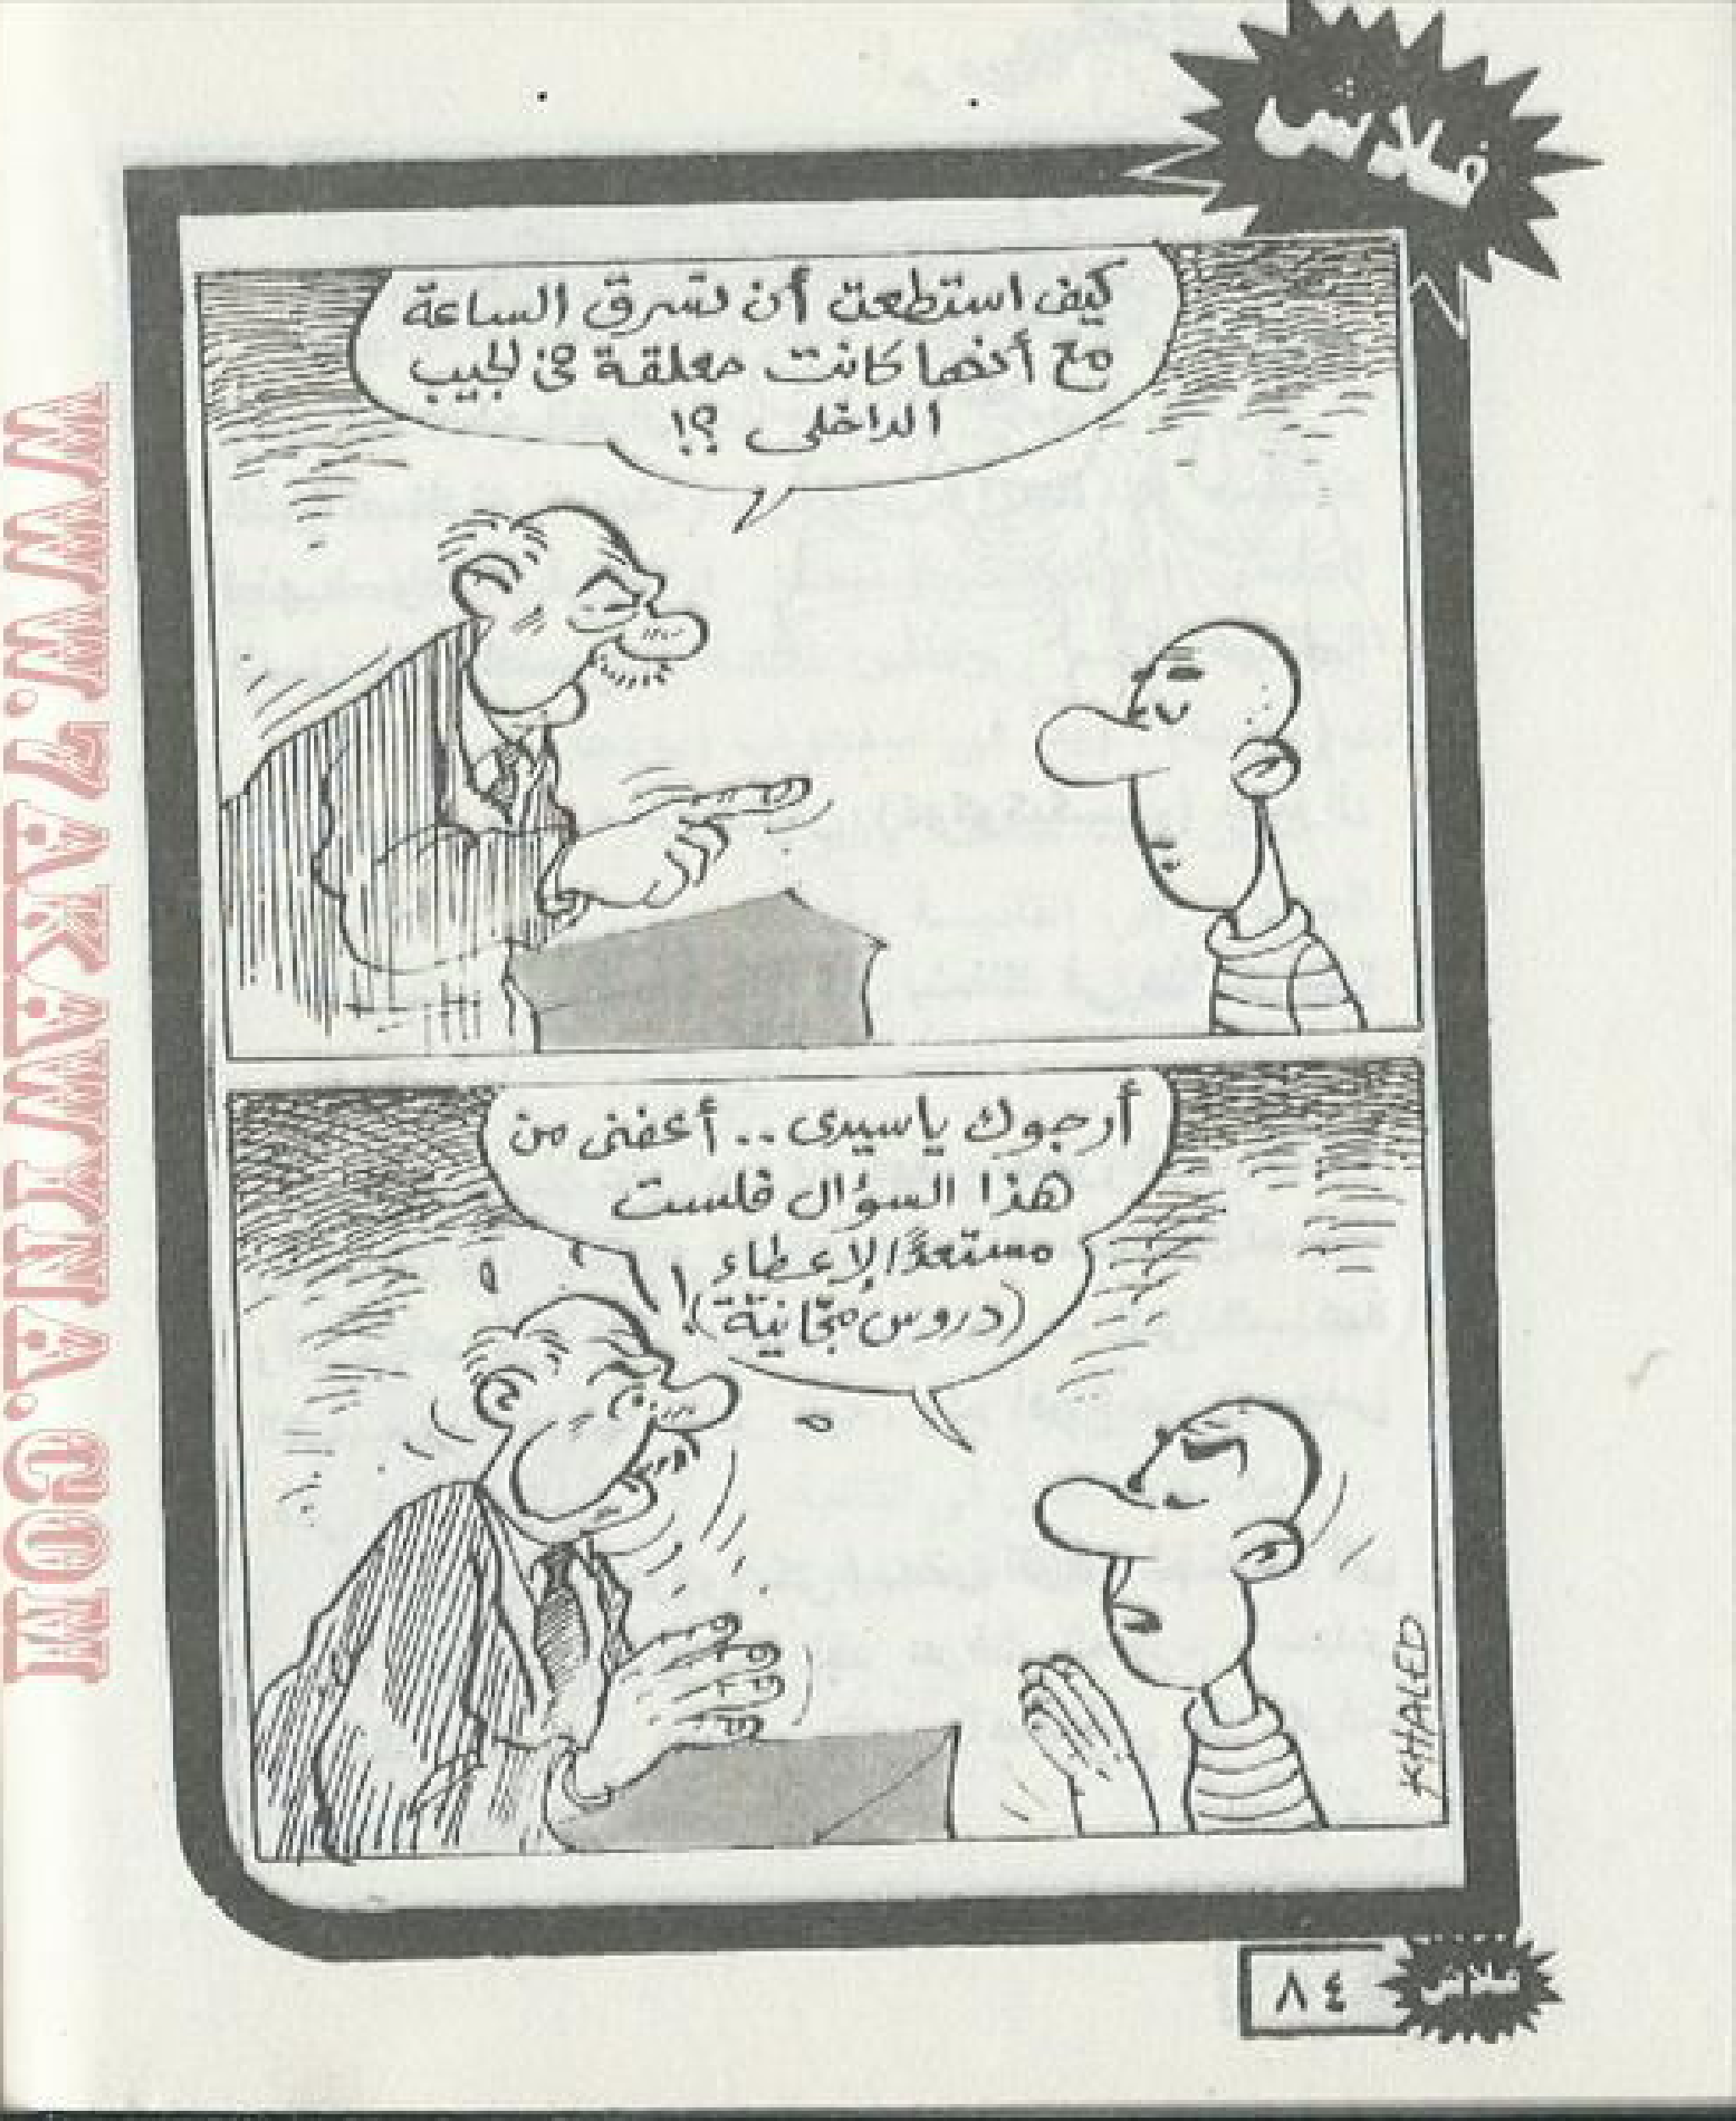 فلاش
كيف استطعت أن تسرق الساعة
مع أنها كانت معلقة فى الجيب
الداخلى ؟!
أرجوك ياسيدى .. أعفنى من
هذا السؤال فلست
مستعدًا لإعطاء
(دروس مجّانيّة)!
KHALED
٨٤
فلاش
WWW.7AKAWTNA.COM